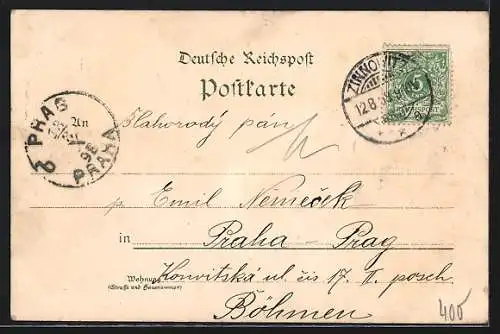 Deutsche Reichspost
Postkarte
ZINNOWITZ
12.8.
5
REICHSPOST
PRAG
PRAHA
An
Blahorodý pán
p. Emil Nemeček
in
Praha - Prag
Wohnung
(Straße und Hausnummer)
ul. čís 17. II. posch.
Böhmen
400